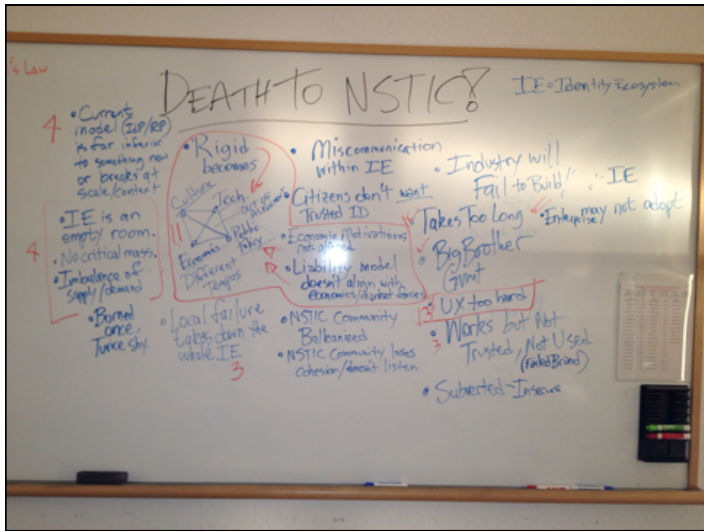 's Law
DEATH TO NSTIC!
IE = Identity Ecosystem
4
• Current
model (IdP/RP)
is far inferior
to something new
or breaks at
scale/context
4
• IE is an
empty room.
• No critical mass.
• Imbalance of
supply/demand
• Burned
once,
Twice shy.
• Rigid
becomes
Culture
Tech
out of
alignment
11
Economic
Public
Policy
Different
Tempos
• Local failure
takes down the
whole IE
3
• Miscommunication
within IE
• Citizens don't want
Trusted ID
• Economic Motivations
not aligned
• Liability model
doesn't align with
economics/market forces
• NSTIC Community
Balkanized
• NSTIC Community loses
cohesion/doesn't listen
• Industry will
Fail to Build
IE
• Takes Too Long
• Enterprise may not adopt
• Big Brother
Gmt
• UX too hard
12
• Works but Not
Trusted, Not Used
(failed Brand)
3
• Subverted - Insecure